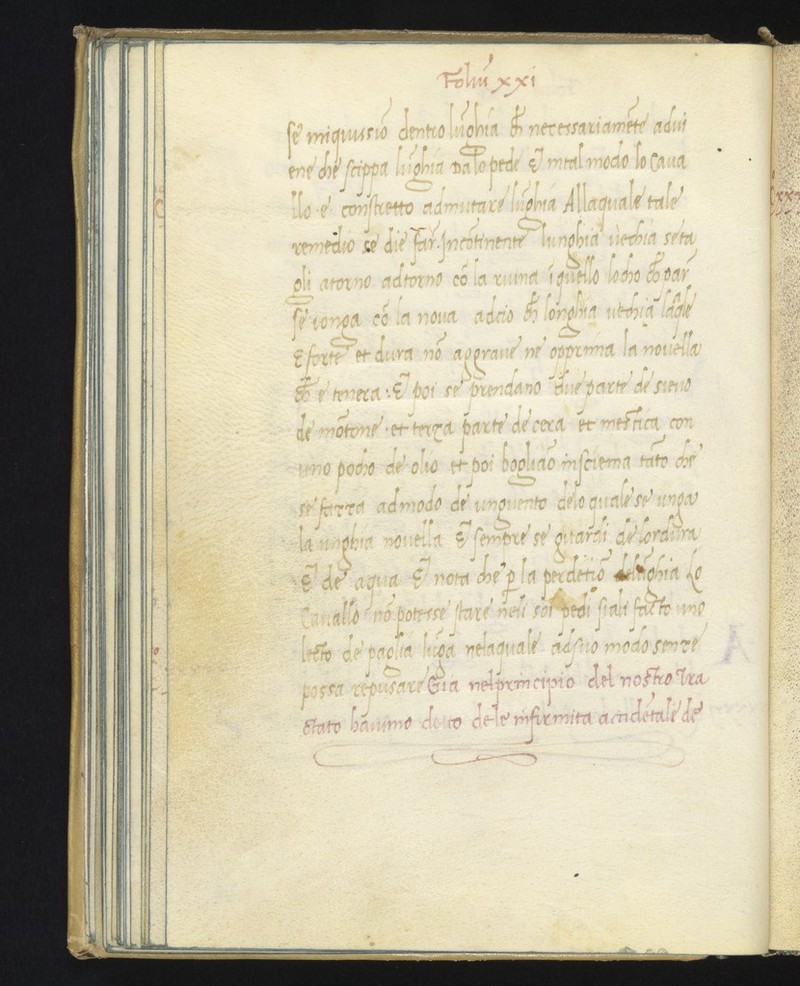 Foliū xxi
sé miquissiō dentro lūghia ch̄ necessariamēte advi
ene ché scippa lūghia Dalo pede Et intal modo lo Cava
llo é constretto admutaré lūghia Allaqualé talé
remedio sé dié far̄. Incōtinenté lunghia vechia sé ta
gli atorno adtorno cō la ruina ī quello locho ch̄ par̄
sé ionga cō la nova adcio ch̄ longhia vechia laq̄le
é forté et dura nō aggravé né opprima la novella
ch̄ é tenera: Et poi sé prendano dué parté dé sievo
dé mōtoné · et terza parté dé cera et mestica con
uno pocho dé olio et poi bogliāo insciema tāto ché
sé fazza admodo dé unguento delo qualé sé unga
la unghia novella Et sempré sé guardi dé lordura
Et dé aqua Et nota ché p̄ la perdetiō delūghia Lo
Cavallo nō potessé staré neli soi pedi siali facto uno
lecto dé paglia lūga nelaqualé adsuo modo senzé
possa repusaré Gia nelprincipio del nostro Tra
ctato havimo decto delé infirmita accidētalé dé